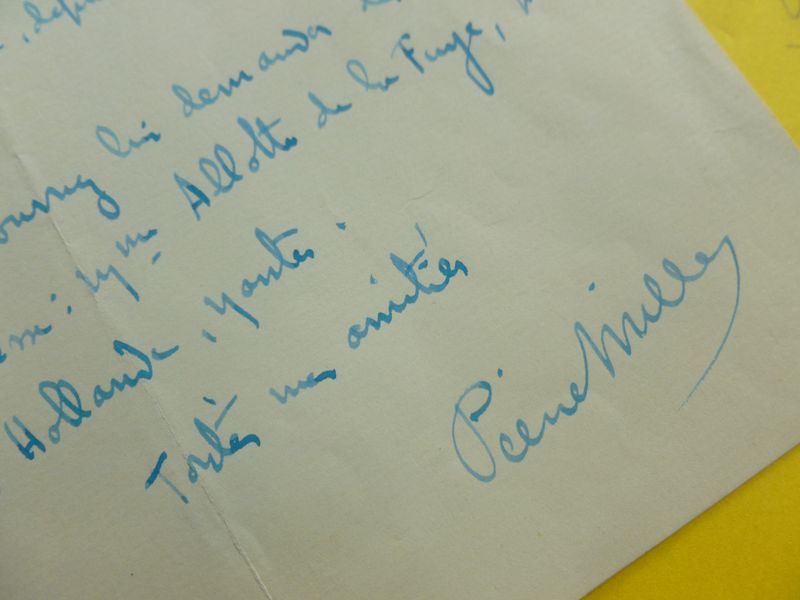 , depu
pourrez lui demander
: Mme Allotte de la Fuÿe,
Hollande, Nantes.
Toutes mes amitiés
Pierre Mille